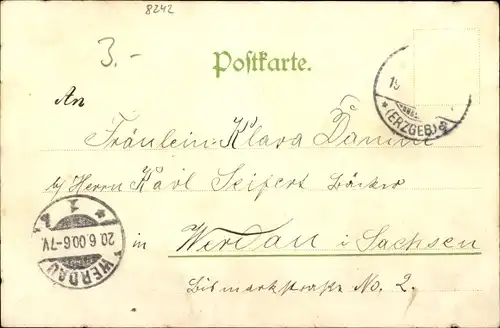 8242
3.-
Postkarte.
19
(ERZGEB)
An
Fräulein Klara
b/ Herrn Karl Seifert Bäcker
WERDAU
20.6.00.6-7V.
1
in Werdau i Sachsen
Bismarkstraße No. 2.